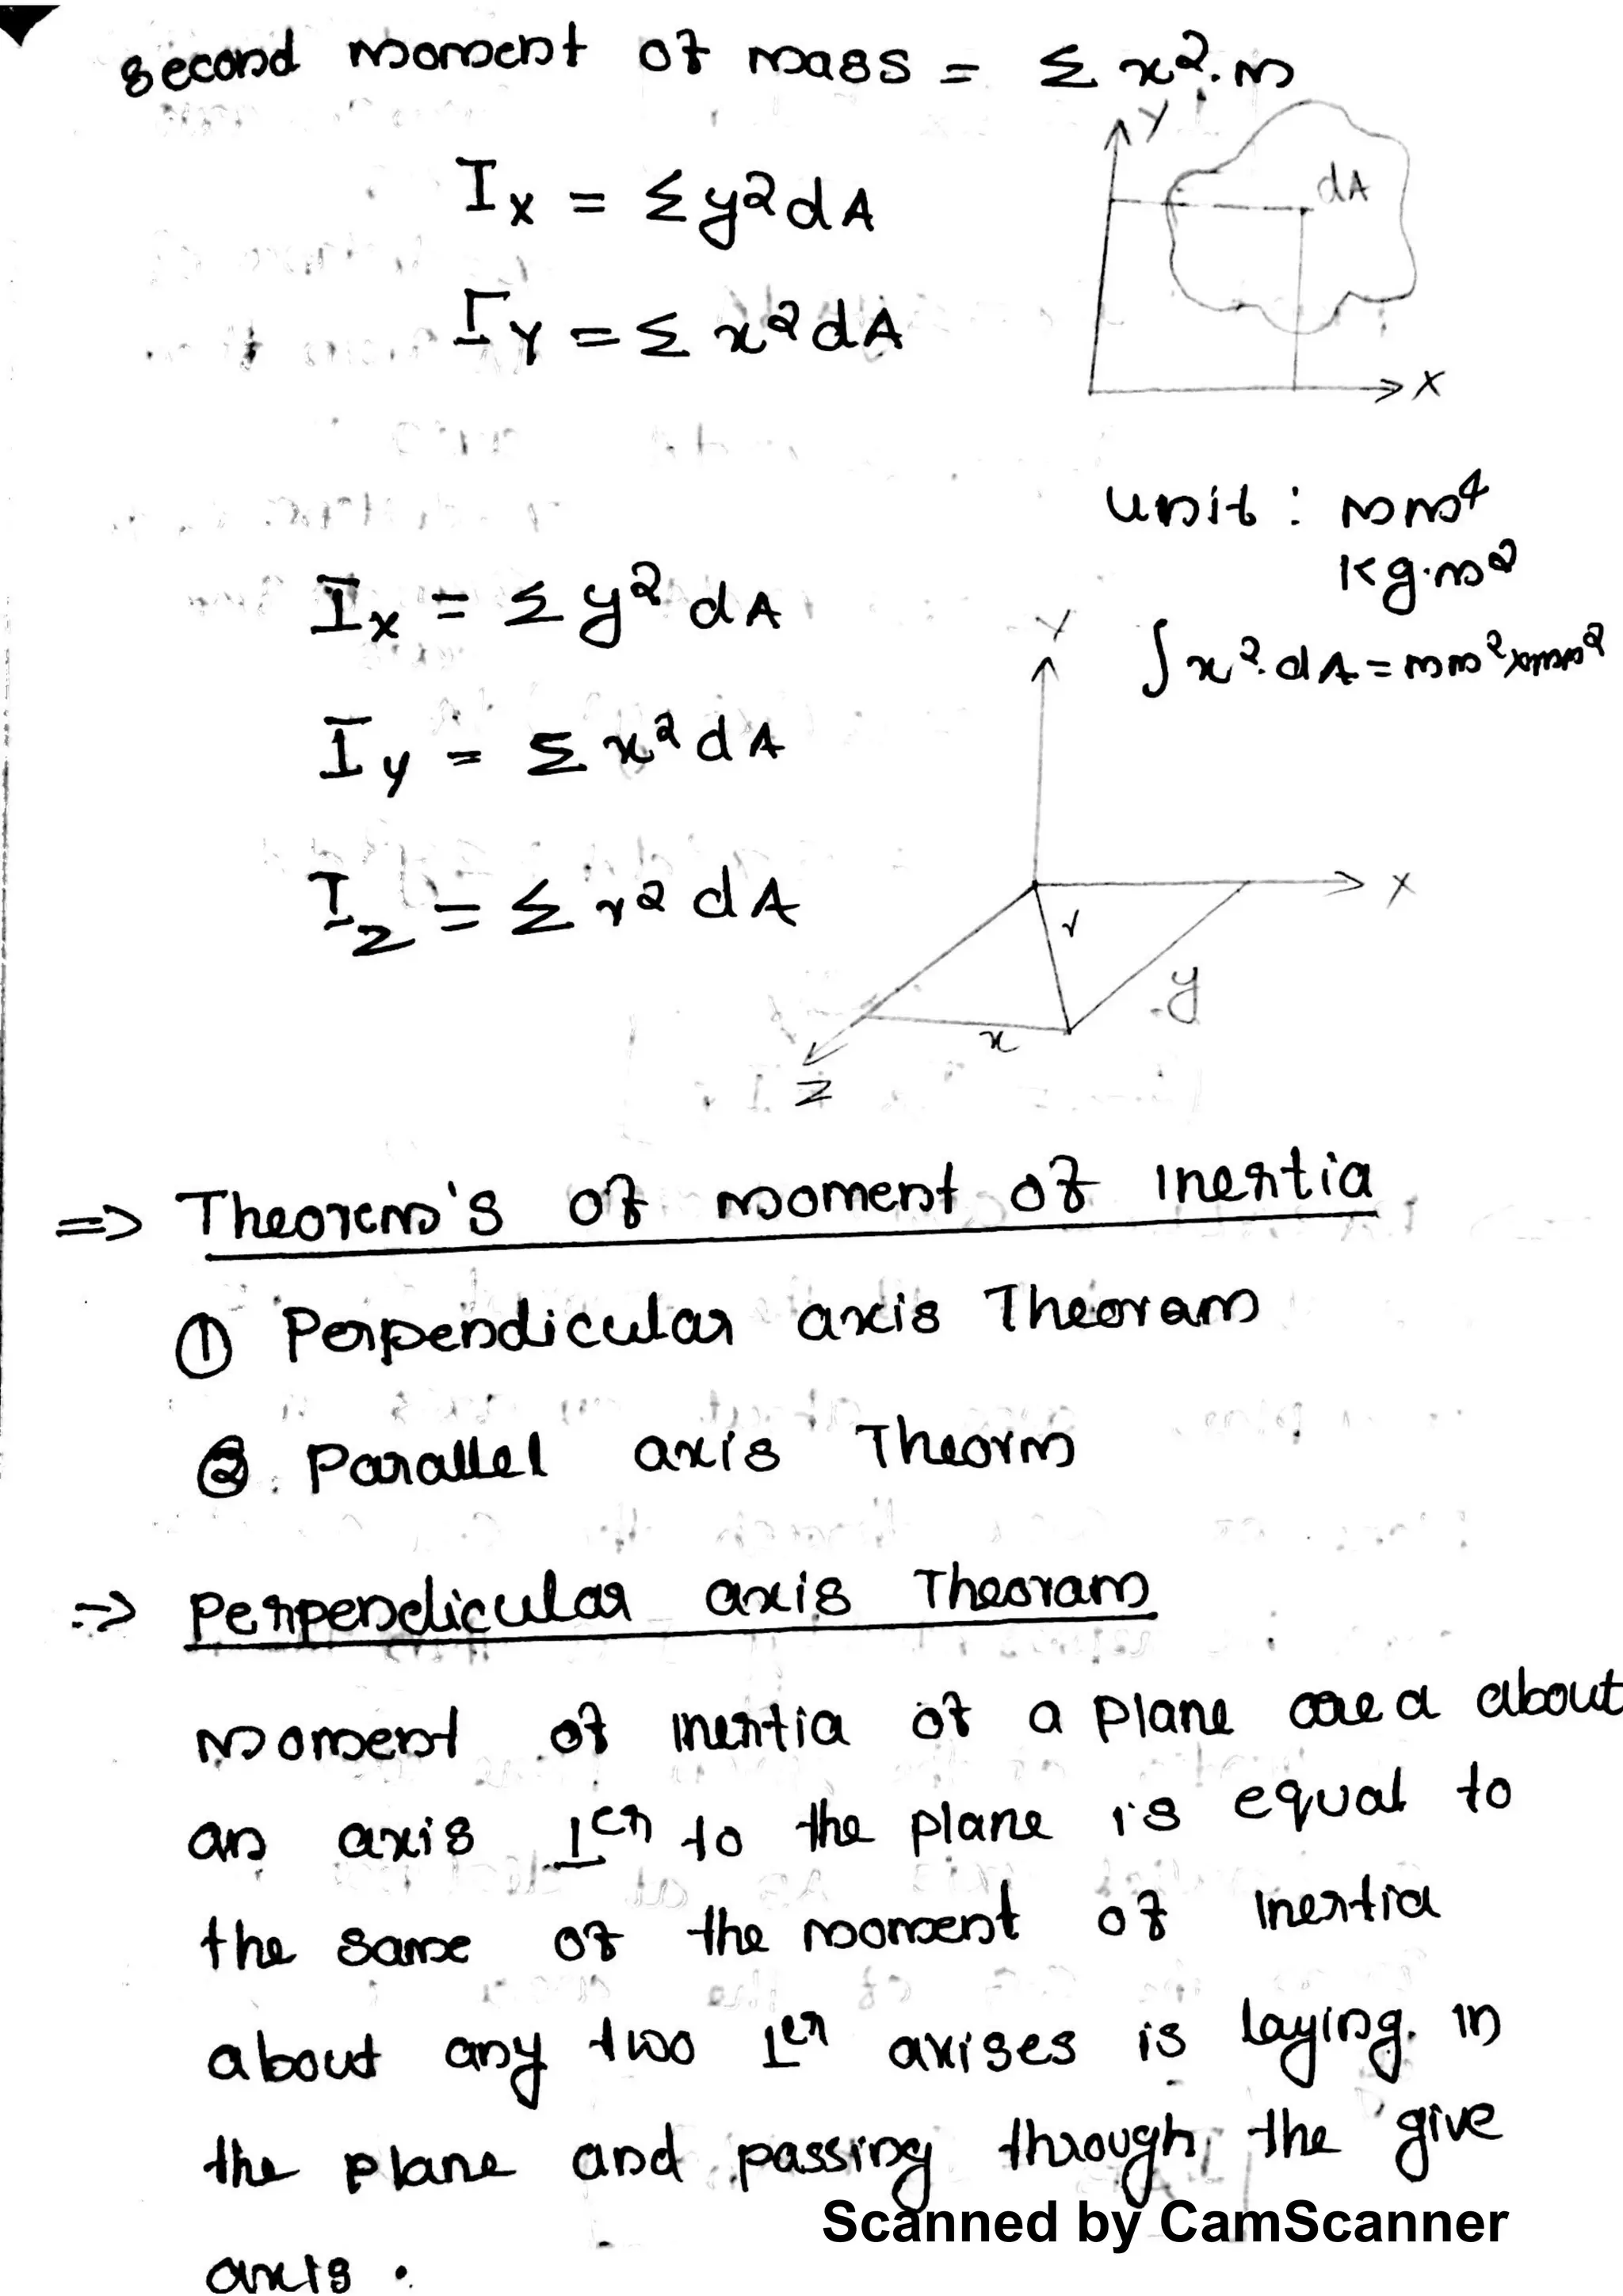 second moment of mass = Σ x². m
Y
Ix = Σ y² dA
dA
IY = Σ x² dA
X
unit : mm⁴
kg.m²
Ix = Σ y² dA
Y
∫ x². dA = mm² x mm²
Iy = Σ x² dA
Iz = Σ r² dA
X
r
y
x
Z
=> Theorem's of moment of Inertia
① Perpendicular axis Theoram
② Parallel axis Theorm
=> Perpendicular axis Theoram
Moment of Inertia of a plane area about
an axis ⊥er to the plane is equal to
the same of the moment of Inertia
about any two ⊥er axises is laying. in
the plane and passing through the give
Scanned by CamScanner
axis .